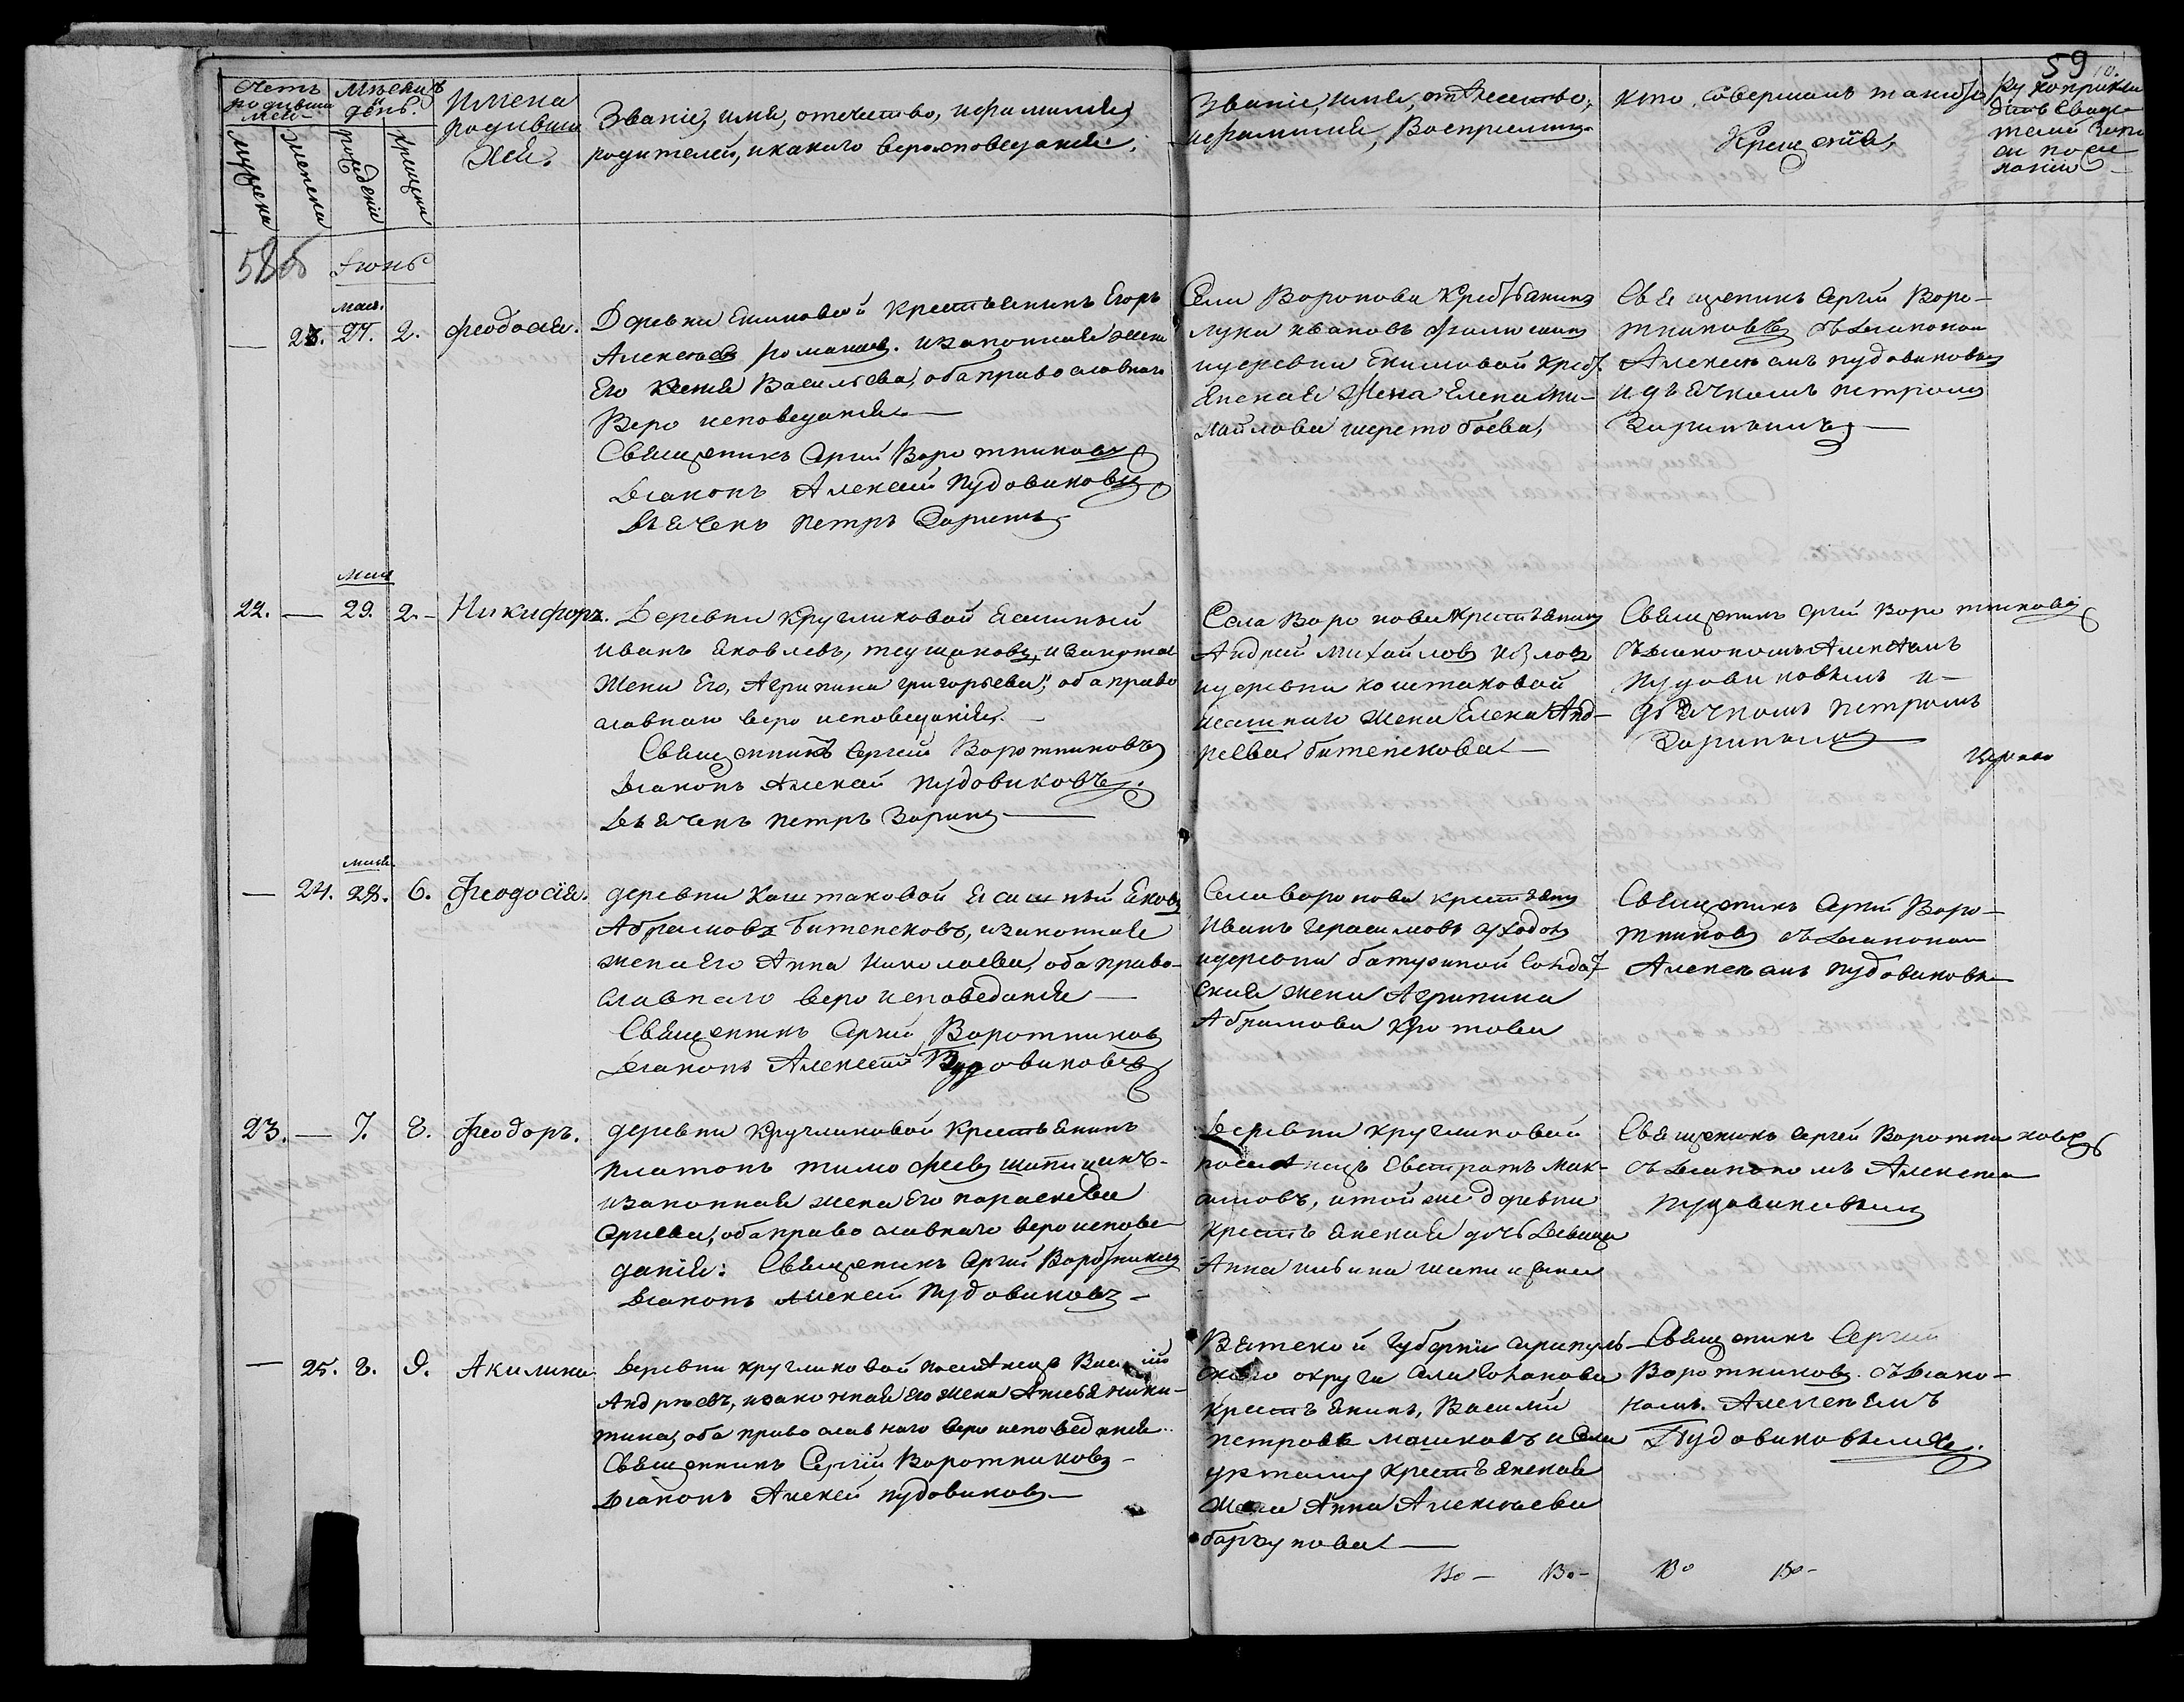 59
Счетъ родившихся
Мѣсяцъ и день.
Имена родившихся.
Званіе, имя, отечество, и фамилія
родителей, и какого вероисповеданія.
Званіе, имя, отчество,
и фамилія, Воспріемниковъ
Кто совершалъ таинство
Крещенія,
мужеска
женска
рожденія
крещенія
58об
Іюнь
мая.
— 23. 27. 2. Феодосія.
Деревни Екимовой крестьянинъ Егоръ
Алексѣевъ Романовъ. и законная жена
Его Ксенія Васильева, оба православнаго
Веро исповеданія —
Священникъ Сергій Воротниковъ
Діаконъ Алексій Пудовиковъ
Дьячекъ Петръ Заринъ
Села Воронова Крестьянинъ
Лука Ивановъ
и деревни Екимовой Крест.
янская Жена Елена Ми-
хайлова Шеретобоева,
Священникъ Сергій Воро-
тниковъ съ Діакономъ
Алексѣемъ Пудовиковымъ
и дьячкомъ Петромъ
Заринымъ —
мая
22. — 29. 2. — Никифоръ.
Деревни Кругликовой Ясашный
Иванъ Яковлевъ, Теущаковъ, и законная
Жена Его, Агрипина Григорьева, оба право
славнаго веро исповеданія. —
Священникъ Сергій Воротниковъ
Діаконъ Алексій Пудовиковъ.
Дьячекъ Петръ Заринъ —
Села Воронова Крестьянинъ
Андрей Михайловъ Изловъ
и деревни Коштаковой
ясашнаго Жена Елена Анд-
реева Битенекова —
Священникъ Сергій Воротниковъ
съ Діакономъ Алексѣемъ
Пудовиковымъ и —
Дьячкомъ Петромъ
Заринымъ
мая.
— 24. 28. 6. Феодосія.
деревни Коштаковой Ясашный Яковъ
Абрамовъ Битенековъ, и законная
жена Его Анна Николаева, оба право-
славнаго веро исповеданія —
Священникъ Сергій Воротниковъ
Діаконъ Алексѣй Пудовиковъ
Села Воронова крестьянинъ
Иванъ Герасимовъ Уходовъ
и деревни Батуриной Солдат
ская жена Агрипина
Абрамова Кротова
Священникъ Сергій Воро-
тниковъ съ Діакономъ
Алексѣемъ Пудовиковымъ
23. — 7. 8. Феодоръ.
деревни Кругликовой Крестьянинъ
Платонъ Тимофеевъ Шипицинъ-
и законная жена Его Параскева
Сергіева, оба православнаго веро испове
данія: Священникъ Сергій Воротниковъ
Діаконъ Алексѣй Пудовиковъ —
Деревни Кругликовой
поселенецъ Евстратъ Мак-
симовъ, и той же деревни
Крестьянская дочь Девица
Анна Ильина Шипицина
Священникъ Сергей Воротниковъ
съ Діакономъ Алексѣемъ
Пудовиковымъ
— 25. 8. 9. Акилина
Деревни Кругликовой поселенецъ Василій
Андреевъ, и законная его жена Ники-
тина, оба православнаго веро исповеданія.
Священникъ Сергій Воротниковъ —
Діаконъ Алексей Пудовиковъ —
Вятской Губерніи Сарапуль-
скаго округа села
Крестьянинъ, Василій
Петровъ Машковъ и Села
Уртаму Крестьянская
Жена Анна Алексѣева
Барзунова —
Священникъ Сергій
Воротниковъ. съ Діако-
номъ. Алексѣемъ
Пудовиковымъ.